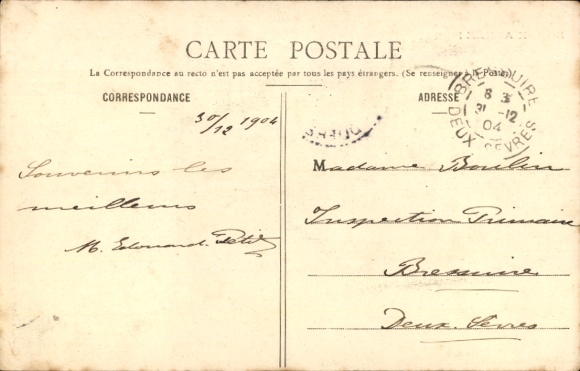 CARTE POSTALE
La Correspondance au recto n'est pas acceptée par tous les pays étrangers. (Se renseigner à la Poste)
CORRESPONDANCE
ADRESSE
30/12 1904
Souvenirs les
meilleurs
M. Edouard Petit
BRESSUIRE
8
31 -12
04
DEUX SEVRES
Madame Boulin
Inspection Primaire
Bressuire
Deux-Sèvres